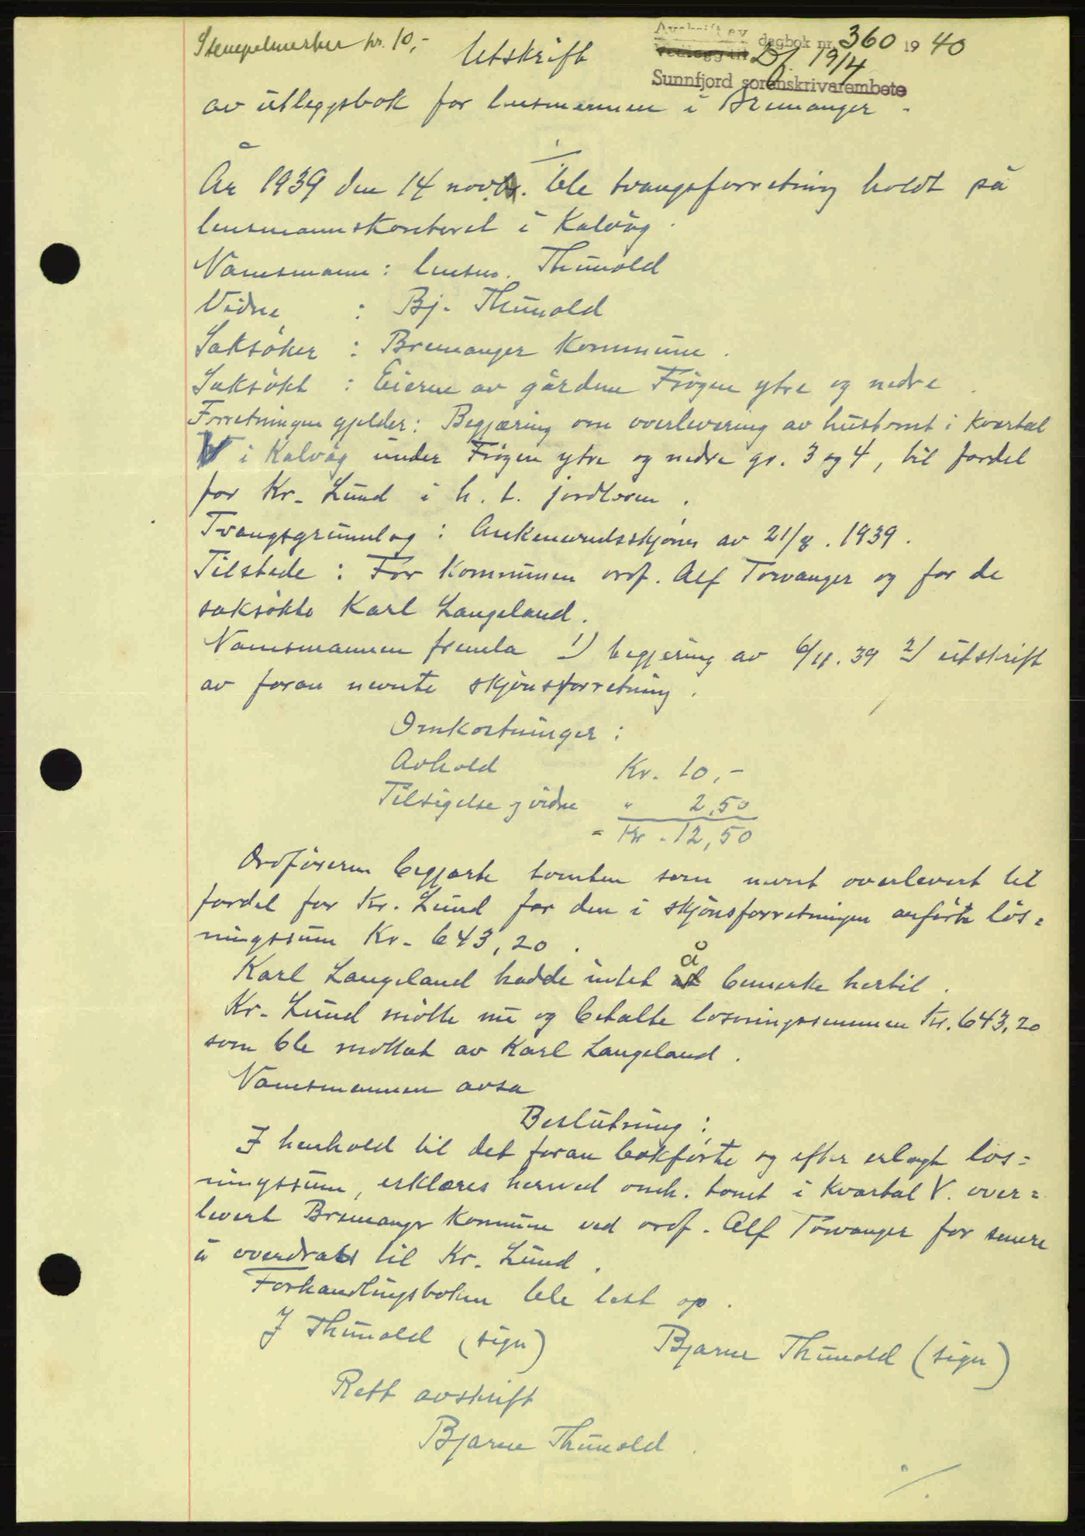 Stempelmerker kr. 10,-
Avskrift av
Vedlegg til dagbok nr. 360 1940
Df. 19/4
Sunnfjord sorenskrivarembete
Utskrift
av utleggsbok for lensmannen i Bremanger.
År 1939 den 14 novbr. ble tvangsforretning holdt på
lensmannskontoret i Kalvåg.
Namsmann: lensm. Thunold
Vidne : Bj. Thunold
Saksøker : Bremanger Kommune.
Saksøkt : Eierne av gårdene Frøyen ytre og nedre.
Forretningen gjelder: Begjæring om overlevering av hustomt i kvartal
V i Kalvåg under Frøyen ytre og nedre gr. 3 og 4, til fordel
for Kr. Lund i h. t. jordloven.
Tvangsgrunnlag: Ankenevndsskjønn av 21/8. 1939.
Tilstede: For Kommunen ordf. Alf Torvanger og for de
saksøkte Karl Langeland.
Namsmannen fremla 1) begjering av 6/11. 39 2) utskrift
av foran nevnte skjønsforretning.
Omkostninger:
Avhold Kr. 10,-
Tilsigelse og vidne " 2,50
= Kr. 12,50
Ordføreren begjærte tomten som nevnt overlevert til
fordel for Kr. Lund for den i skjønsforretningen anførte løs=
ningssum Kr. 643,20.
Karl Langeland hadde intet å bemerke hertil.
Kr. Lund møtte nu og betalte løsningssummen Kr. 643,20
som ble mottat av Karl Langeland.
Namsmannen avsa
Beslutning:
I henhold til det foran bokførte og efter erlagt løs=
ningssum, erklæres herved omh. tomt i Kvartal V. over=
levert Bremanger Kommune ved ordf. Alf Torvanger for senere
å overdras til Kr. Lund.
Forhandlingsboken ble lest op.
J Thunold (sign) Bjarne Thunold (sign)
Rett avskrift
Bjarne Thunold